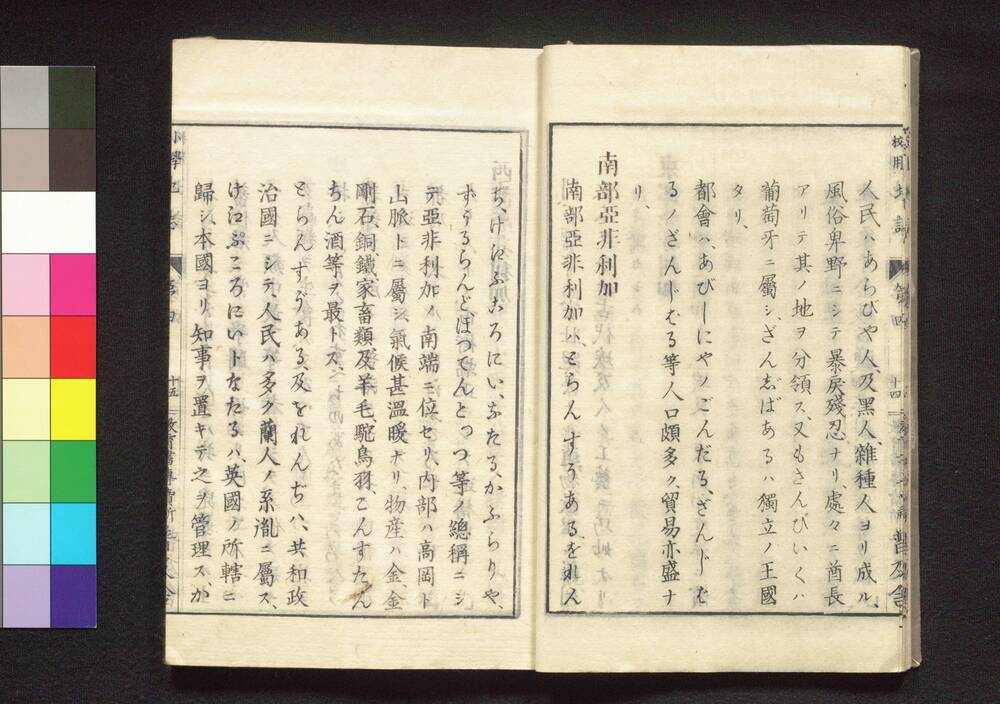 人民ハ、あらびや人、及黑人、雜種人ヨリ成ル、
風俗卑野ニシテ暴戾殘忍ナリ、處々ニ酋長
アリテ其ノ地ヲ分領ス、又もさんびいくハ
葡萄牙ニ屬シ、ざんぢばあるハ獨立ノ王國
タリ、
都會ハ、あびしにやノごんだる、ざんじむ
るノざんじむる等人口頗多ク、貿易亦盛ナ
リ、
南部亞非利加
南部亞非利加ハ、とらんすうあある、をれん
ち、けゑぷころにい、なたる、かふらりや、
ずうるらんど、ほつてんとつつ等ノ總稱ニシ
テ、亞非利加ノ南端ニ位セリ、內部ハ高岡ト
山脈トニ屬シ、氣候甚溫暖ナリ、物產ハ金、金
剛石、銅、鐵、家畜類及羊毛、駝鳥羽、こんすたん
ちん酒等ヲ最トス、
とらんすうあある、及をれんぢハ、共和政
治國ニシテ、人民ハ多ク蘭人ノ系胤ニ屬ス、
けゑぷころにいトなたるハ、英國ノ所轄ニ
歸シ、本國ヨリ、知事ヲ置キテ之ヲ管理ス、か
第四
十四
十五